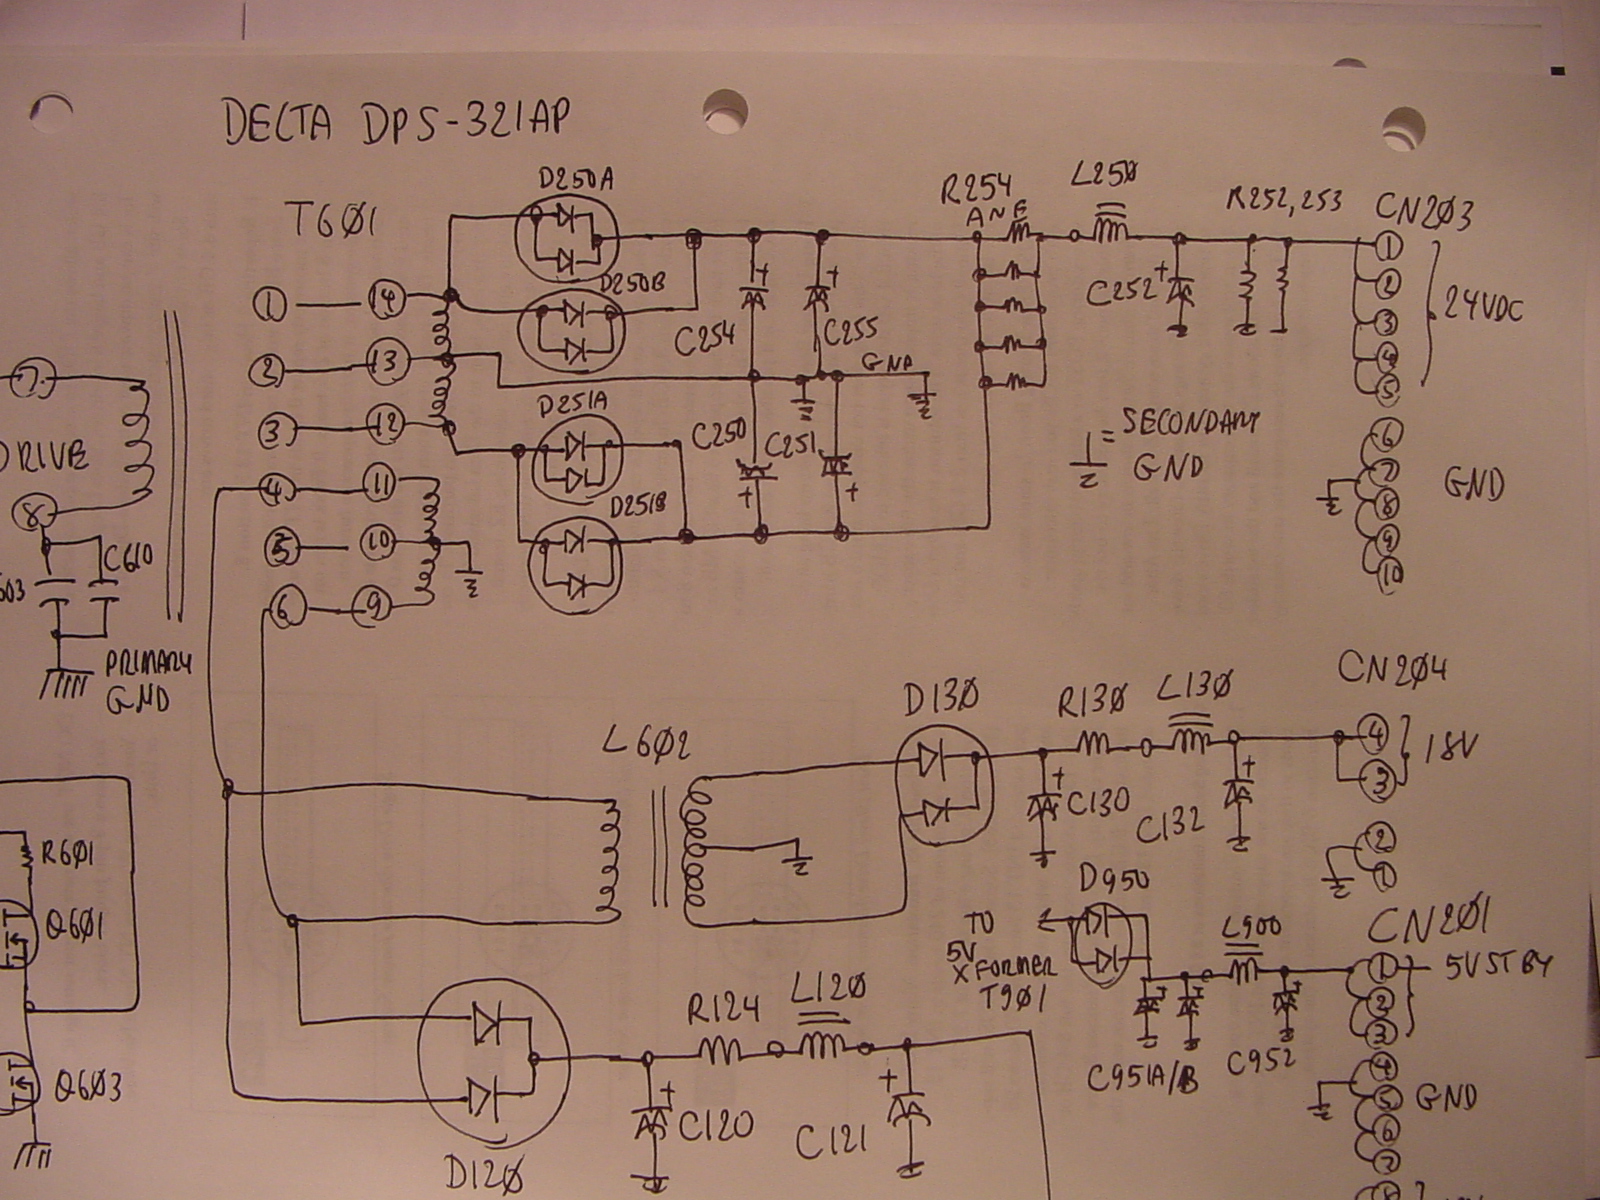 DELTA DPS-321AP
T6Ø1
D25ØA
D25ØB
D251A
D251B
C254
C255
C250
C251
GND
R254
L25Ø
C252
R252, 253
CN2Ø3
1
2
3
4
5
24VDC
6
7
8
9
10
GND
= SECONDARY
GND
1
14
2
13
3
12
4
11
5
10
6
9
7
DRIVE
8
C610
PRIMARY
GND
L6Ø2
D13Ø
R13Ø
L13Ø
C130
C132
CN2Ø4
4
3
18V
2
1
R6Ø1
Q6Ø1
Q6Ø3
D950
TO
5V
XFORMER
T9Ø1
L900
C951A/B
C952
CN2Ø1
1
5VSTBY
2
3
4
5
6
7
GND
D12Ø
R124
L12Ø
C120
C121